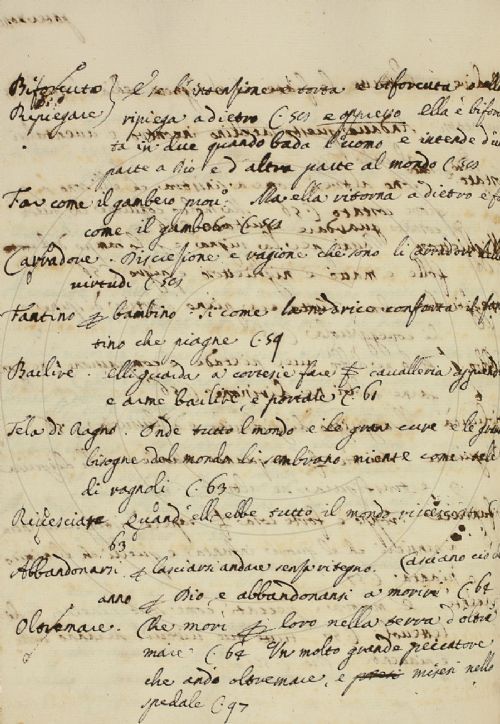 Biforcuta E se l'intensione è torta e biforcuta o ella
Ripiegare ripiega a dietro C. 505 e appresso Ella è bifor
ta in due quando bada l'uomo e intende d'u
parte a Dio e d'altra parte al mondo C. 505
Far come il gambero prov: Ma ella ritorna a dietro e f
come il gambero C. 505
Corridore. Discresione e ragione che sono li corridori delle
virtudi C. 505
Fantino p bambino. Si come la nodrice conforta il fan
tino che piagne C. 59
Bailire. elli guada a cortesie fare p cavalleria
e arme bailire, e portare C. 61
Tela di Ragno. Onde tutto l mondo e le gran cure e le gran
bisogne del mondo li sembrano niente come tele
di ragnoli C. 63
Rincresciare Quand'elli ebbe tutto il mondo
63
Abbandonarsi p lasciarsi andare senza ritegno. Lasciano ciò ch
anno p Dio, e abbandonansi a morire C. 64
Oltremare. Che morì p loro nella terra d'oltre
mare C. 64 Un molto grande peccatore
che andò oltremare, e misesi nello
spedale C. 97